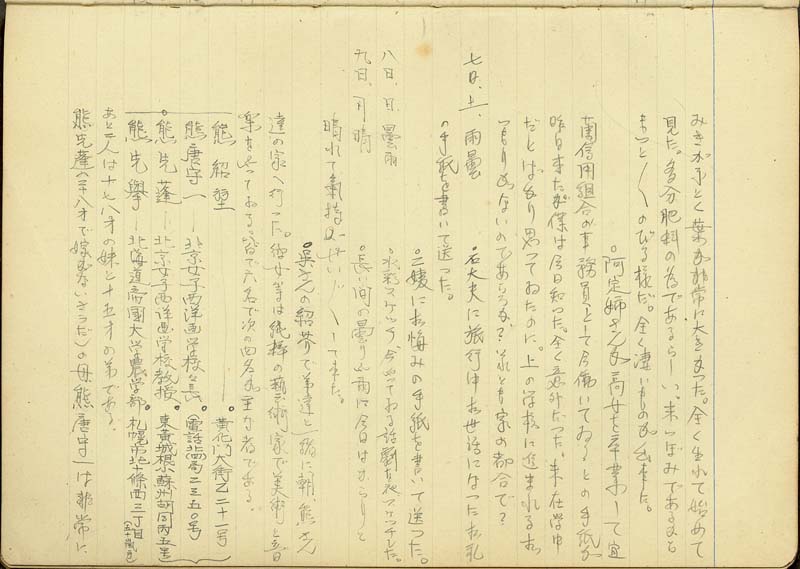 みきが手とく葉が非常に大きかった。全く生れて始めて
見た。多分肥料の為であるらしい。未つぼみであるから
もっと〱のびる様だ。全く凄いものが出来た。
阿定姉さんが高女を卒業して宜
蘭信用組合の事務員として今働いてゐるとの手紙が
昨日来たが僕は今日知った。全く意外だった。未在学中
だとばかり思ってゐたのに。上の学校に進まれるお
つもりがないのであらうか?それとも家の都合で?
七日、土、雨曇 ○石大夫に旅行中お世話になったお礼
の手紙を書いて送った。
○二嫂にお悔みの手紙を書いて送った。
八日、日、曇雨 ○水彩スケッチ
九日、月晴 ○長い間の曇りや雨は今日はからりと
晴れて氣持がせい〱してきた。
○吳さんの紹介で弟達と一緒に、朝、熊先
達の家へ行った。彼女等は純粋の藝術家で美術と音
楽をやってゐる。皆で六名で次の四名が主な者である。
熊紹堃 — 黄化門大街乙二十一号
熊唐守一 — 北京女子西洋画学校々長。(電話北局二三五〇号
○熊先蓬 — 北京女子西洋画学校教授。東黄城根小蘇州胡同丙五号
熊先擧 — 北海道帝国大学農学部。札幌市北十條西三丁目
あと二人は十七八才の妹と十五才の弟である。
熊先蓬(二十八才で嫁がないさうだ)の母熊唐守一は非常に